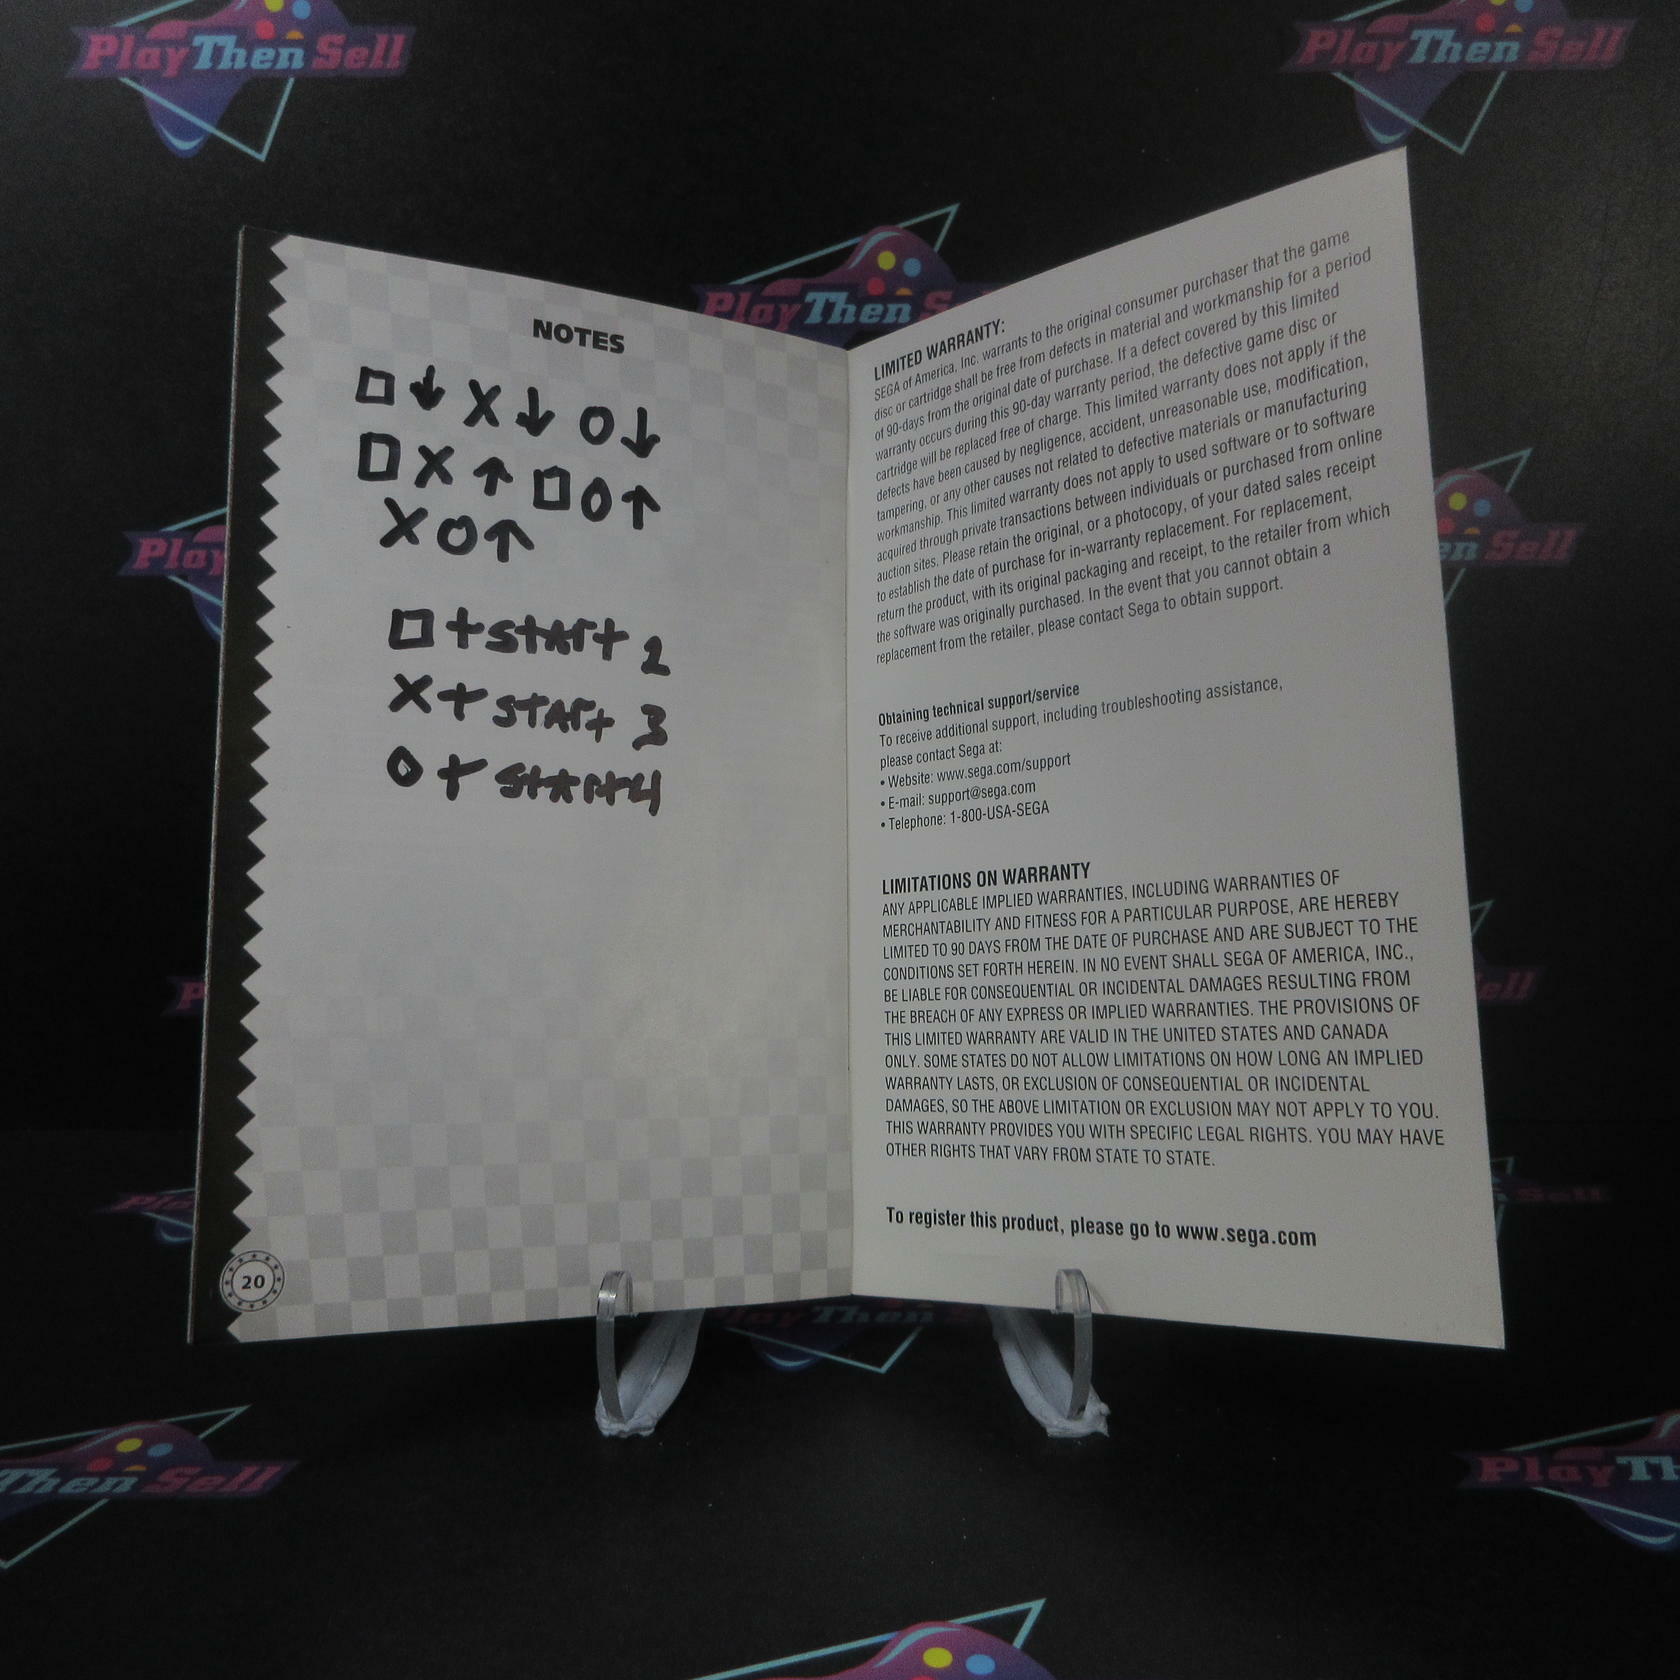 Play Then Sell
Play Then Sell
Play Then S
NOTES
□ ↓ X ↓ O ↓
□ X ↑ □ O ↑
X O ↑
□ + START 2
X + START 3
O + START 4
20
LIMITED WARRANTY:
SEGA of America, Inc. warrants to the original consumer purchaser that the game
disc or cartridge shall be free from defects in material and workmanship for a period
of 90-days from the original date of purchase. If a defect covered by this limited
warranty occurs during this 90-day warranty period, the defective game disc or
cartridge will be replaced free of charge. This limited warranty does not apply if the
defects have been caused by negligence, accident, unreasonable use, modification,
tampering, or any other causes not related to defective materials or manufacturing
workmanship. This limited warranty does not apply to used software or to software
acquired through private transactions between individuals or purchased from online
auction sites. Please retain the original, or a photocopy, of your dated sales receipt
to establish the date of purchase for in-warranty replacement. For replacement,
return the product, with its original packaging and receipt, to the retailer from which
the software was originally purchased. In the event that you cannot obtain a
replacement from the retailer, please contact Sega to obtain support.
Obtaining technical support/service
To receive additional support, including troubleshooting assistance,
please contact Sega at:
• Website: www.sega.com/support
• E-mail: support@sega.com
• Telephone: 1-800-USA-SEGA
LIMITATIONS ON WARRANTY
ANY APPLICABLE IMPLIED WARRANTIES, INCLUDING WARRANTIES OF
MERCHANTABILITY AND FITNESS FOR A PARTICULAR PURPOSE, ARE HEREBY
LIMITED TO 90 DAYS FROM THE DATE OF PURCHASE AND ARE SUBJECT TO THE
CONDITIONS SET FORTH HEREIN. IN NO EVENT SHALL SEGA OF AMERICA, INC.,
BE LIABLE FOR CONSEQUENTIAL OR INCIDENTAL DAMAGES RESULTING FROM
THE BREACH OF ANY EXPRESS OR IMPLIED WARRANTIES. THE PROVISIONS OF
THIS LIMITED WARRANTY ARE VALID IN THE UNITED STATES AND CANADA
ONLY. SOME STATES DO NOT ALLOW LIMITATIONS ON HOW LONG AN IMPLIED
WARRANTY LASTS, OR EXCLUSION OF CONSEQUENTIAL OR INCIDENTAL
DAMAGES, SO THE ABOVE LIMITATION OR EXCLUSION MAY NOT APPLY TO YOU.
THIS WARRANTY PROVIDES YOU WITH SPECIFIC LEGAL RIGHTS. YOU MAY HAVE
OTHER RIGHTS THAT VARY FROM STATE TO STATE.
To register this product, please go to www.sega.com
Play
en Sell
ell
Sell
Then Sell
Play Th